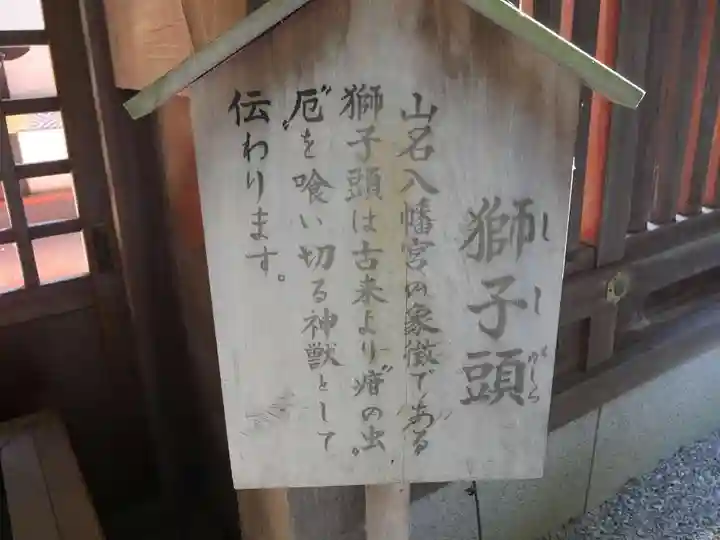 獅子頭
しし
がしら
山名八幡宮の象徴である
獅子頭は古来より〝疳の虫〟
〝厄〟を喰い切る神獣として
伝わります。